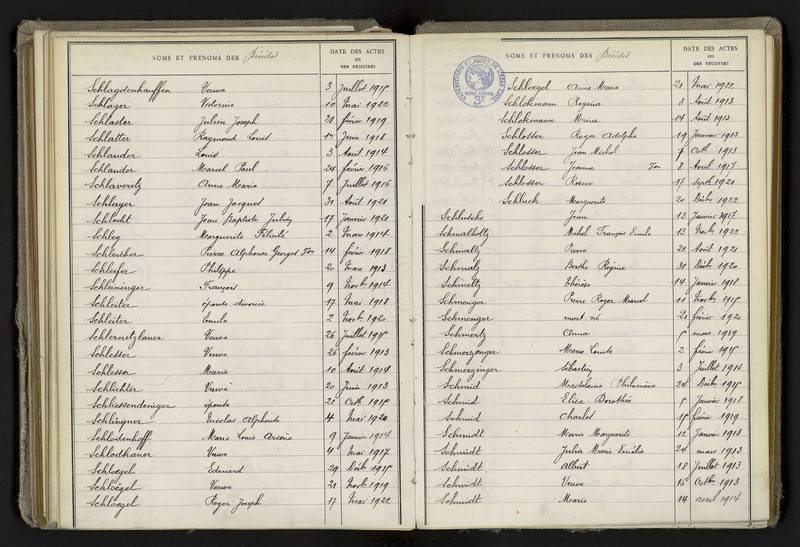 NOMS ET PRENOMS DES Décédés
DATE DES ACTES
OU
DES REGISTRES
Schlagdenhauffen Veuve 3 Juillet 1915
Schlager Victorine 10 Mai 1922
Schlaster Julien Joseph 28 février 1919
Schlatter Raymond Louis 1er Juin 1918
Schlauder Louis 3 Août 1914
Schlauder Marcel Paul 24 février 1916
Schlaveritz Anne Marie 7 Juillet 1916
Schlayer Jean Jacques 31 Août 1921
Schlecht Jean Baptiste 17 Janvier 1921
Schleg Marguerite Félicité 2 Mars 1914
Schleicher Pierre Alphonse Georges 14 février 1918
Schleifer Philippe 20 Mars 1913
Schleininger François 9 Novbre 1914
Schleiter épouse divorcée 17 Mai 1918
Schleiter Emile 2 Novbre 1920
Schlernitzlauer Veuve 26 Juillet 1915
Schlesser Veuve 26 février 1913
Schlesser Marie 10 Août 1914
Schlichter Veuve 20 Juin 1913
Schliessendeiniger épouse 22 Octb 1915
Schlingner Nicolas Alphonse 4 Mai 1920
Schlodenhoff Marie Louis Arsène 9 Janvier 1914
Schlodhauer Veuve 4 Mai 1917
Schloegel Edouard 29 Décb 1915
Schloegel Veuve 21 Novbre 1919
Schloegel Roger Joseph 17 Mai 1922
NOMS ET PRENOMS DES Décédés
DATE DES ACTES
OU
DES REGISTRES
Schloegel Anne Marie 21 Mai 1922
Schlokmann Regina 8 Avril 1913
Schlokmann Mina 14 Août 1913
Schlosser Roger Adolphe 19 Janvier 1913
Schlosser Jean Michel 7 Octb 1913
Schlosser Jeanne 8 Avril 1917
Schlosser Rosine 17 Septb 1921
Schluck Marguerite 20 Décbre 1922
Schlusche Jean 13 Janvier 1917
Schmalholtz Michel François Emile 13 Novbre 1922
Schmaltz Pierre 22 Août 1921
Schmalz Berthe Régine 31 Décbre 1920
Schmeltz Thérèse 14 Janvier 1918
Schmenger Pierre Roger Marcel 11 Novbre 1915
Schmenger mort né 21 février 1920
Schmertz Anna 5 mars 1919
Schmerzenger Marie Louise 2 février 1915
Schmerzinger Sébastien 3 Juillet 1916
Schmid Madeleine Philomène 24 Décbre 1915
Schmid Elisa Dorothée 5 Janvier 1918
Schmid Charles 15 février 1919
Schmidt Marie Marguerite 12 Janvier 1913
Schmidt Julia Marie Emélie 24 mars 1913
Schmidt Albert 18 Juillet 1913
Schmidt Veuve 16 Octbre 1913
Schmidt Marie 14 avril 1914